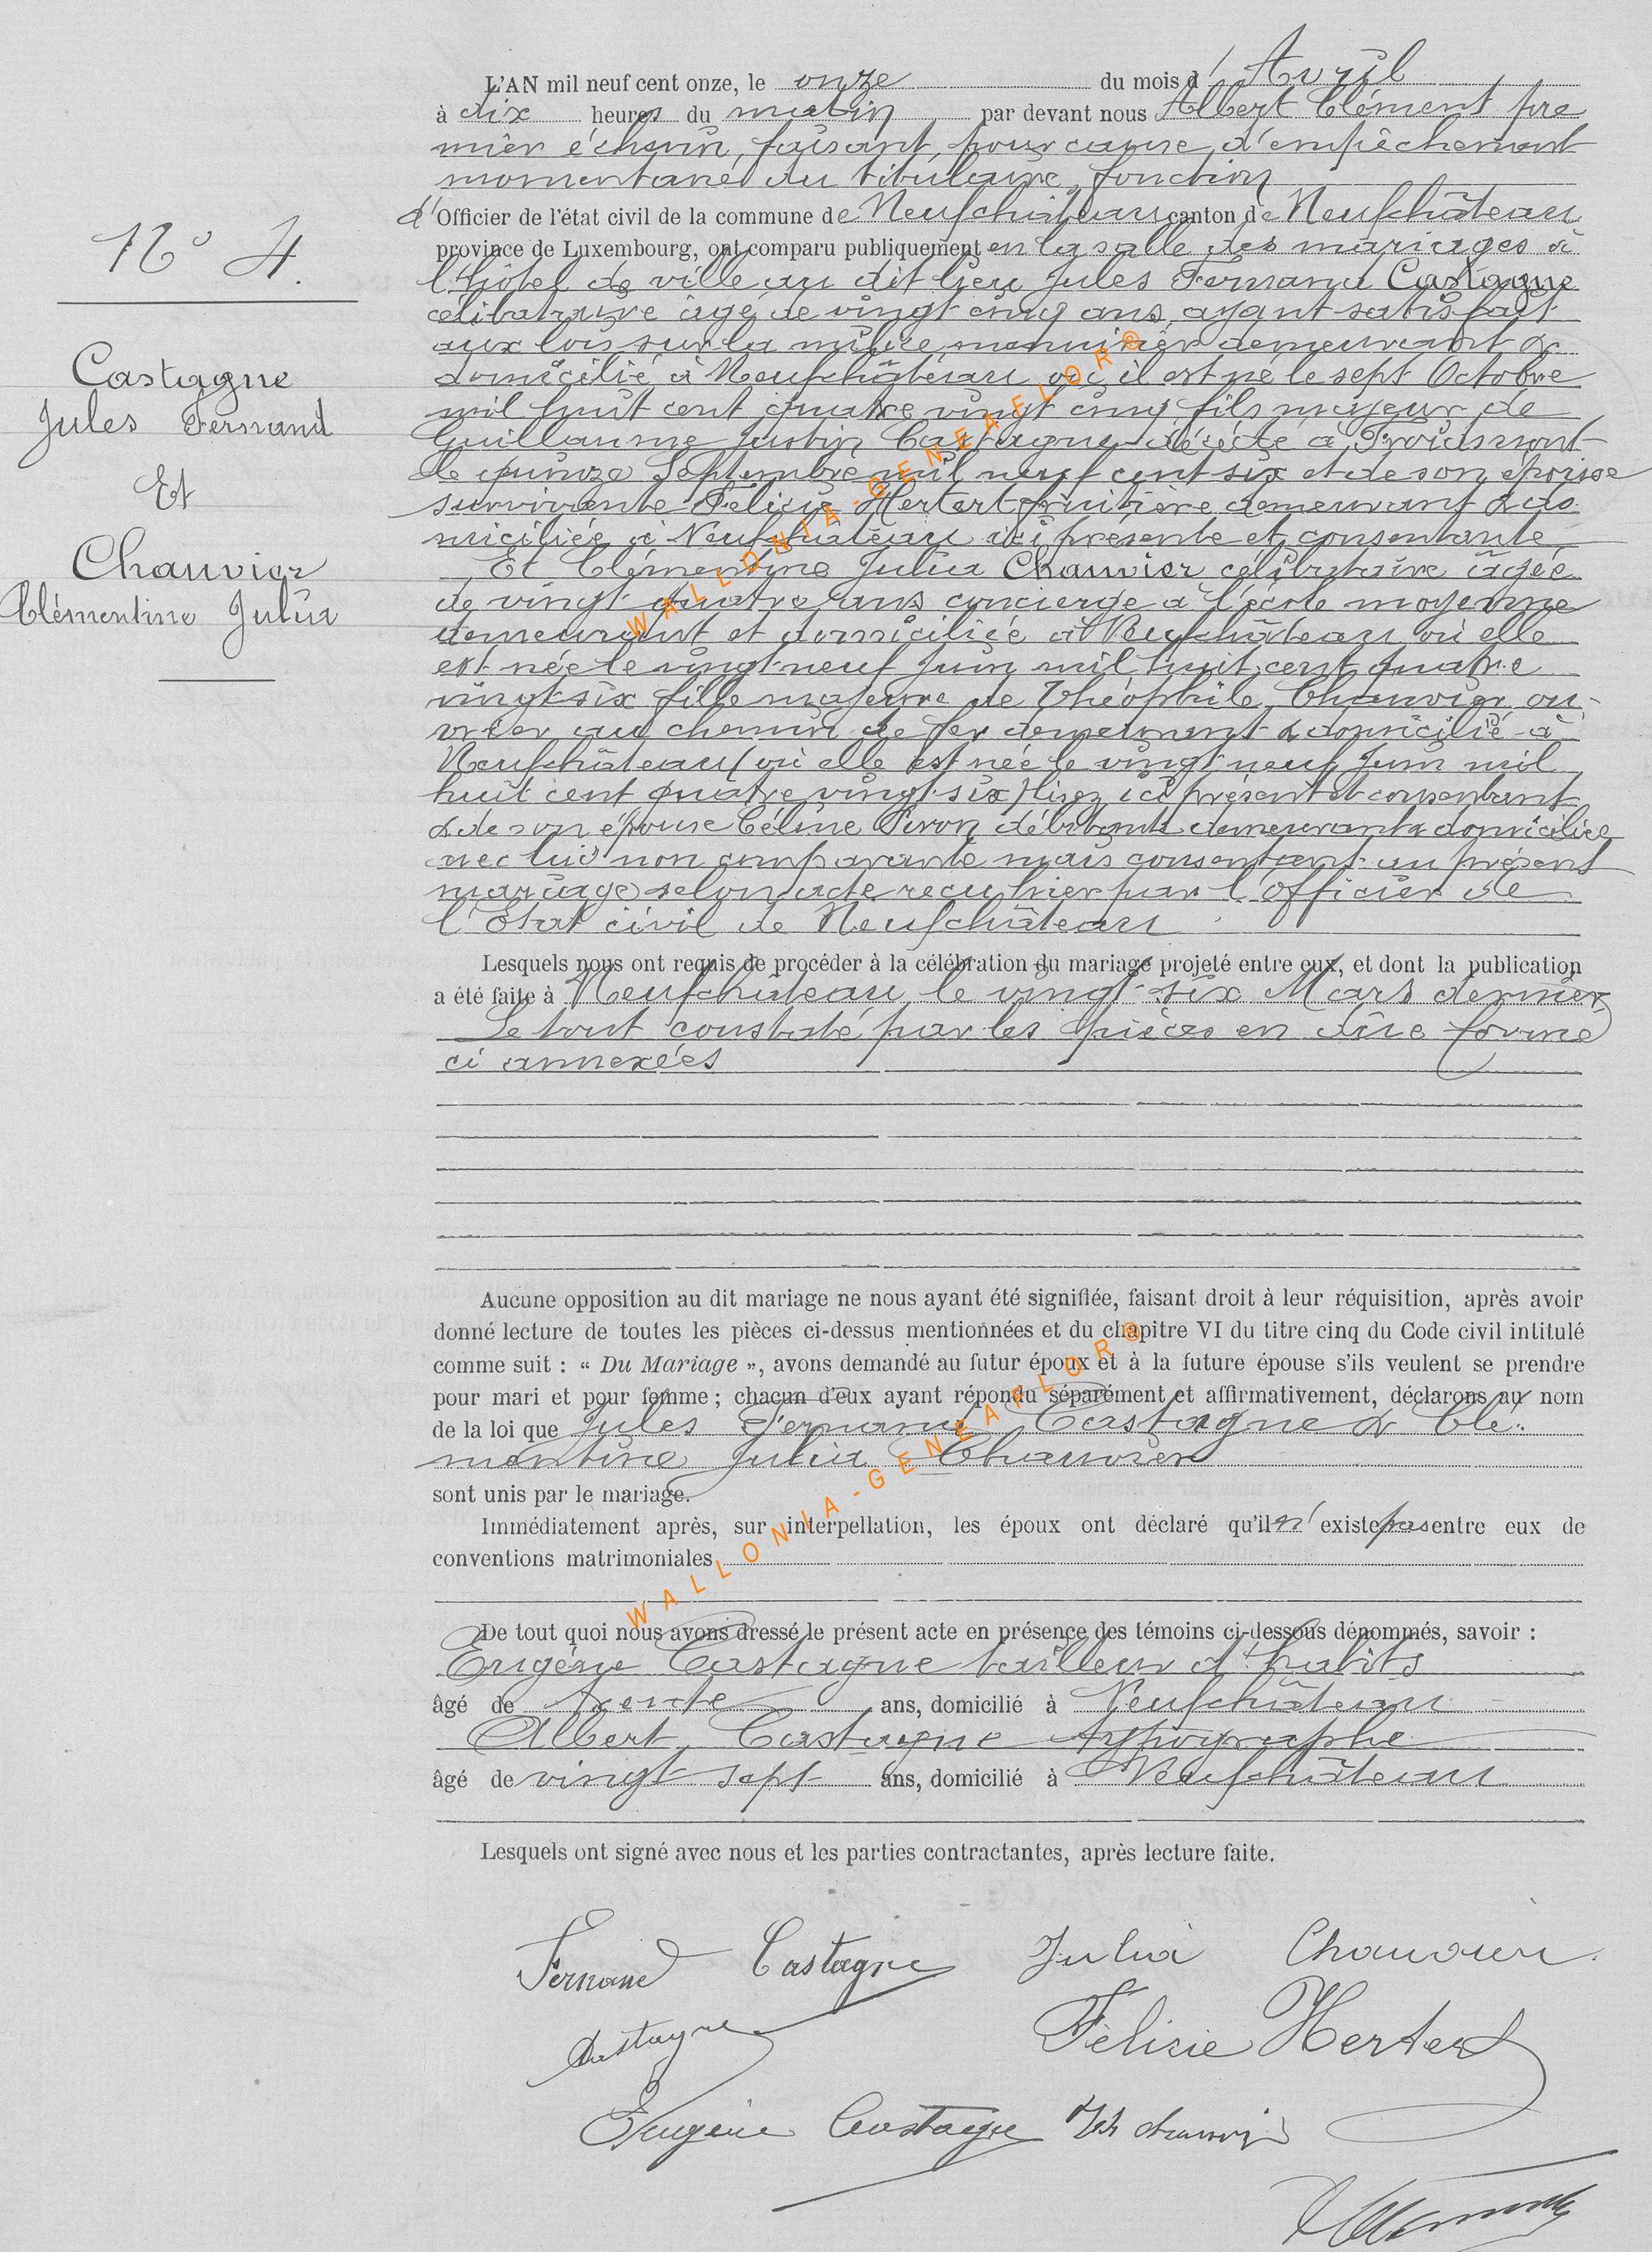 L'AN mil neuf cent onze, le onze du mois d'Avril
à dix heures du matin par devant nous Albert Clément pre
mier échevin, faisant, pour cause d'empêchement
momentané du titulaire, fonction
d'Officier de l'état civil de la commune de Neufchâteau canton de Neufchâteau
province de Luxembourg, ont comparu publiquement en la salle des mariages à
l'hôtel de ville au dit lieu Jules Fernand Castagne
célibataire âgé de vingt cinq ans ayant satisfait
aux lois sur la milice menuisier demeurant &
domicilié à Neufchâteau où il est né le sept Octobre
mil huit cent quatre vingt cinq fils majeur de
Guillaume Justin Castagne décédé à Froidmont
le quinze Septembre mil neuf cent six et de son épouse
survivante Félicie Hertert fruitière demeurant & do
miciliée à Neufchâteau ici présente et consentante
Et Clémentine Julia Chauvier célibataire âgée
de vingt quatre ans concierge à l'école moyenne
demeurant et domiciliée à Neufchâteau où elle
est née le vingt-neuf Juin mil huit cent quatre
vingt six fille majeure de Théophile Chauvier, ou-
vrier au chemin de fer demeurant & domicilié à
Neufchâteau (où elle est née le vingt neuf Juin mil
huit cent quatre vingt-six) lisez ici présent et consentant
& de son épouse Céline Piron débitante demeurant & domiciliée
avec lui non comparante mais consentant au présent
mariage selon acte reçu hier par l'officier de
l'Etat civil de Neufchâteau
N° 4.
Castagne
Jules Fernand
Et
Chauvier
Clémentine Julia
Lesquels nous ont requis de procéder à la célébration du mariage projeté entre eux, et dont la publication
a été faite à Neufchâteau le vingt-six Mars dernier
Le tout constaté par les pièces en due forme
ci annexées
Aucune opposition au dit mariage ne nous ayant été signifiée, faisant droit à leur réquisition, après avoir
donné lecture de toutes les pièces ci-dessus mentionnées et du chapitre VI du titre cinq du Code civil intitulé
comme suit : « Du Mariage », avons demandé au futur époux et à la future épouse s'ils veulent se prendre
pour mari et pour femme ; chacun d'eux ayant répondu séparément et affirmativement, déclarons au nom
de la loi que Jules Fernand Castagne & Clé-
mentine Julia Chauvier
sont unis par le mariage.
Immédiatement après, sur interpellation, les époux ont déclaré qu'il n'existe pas entre eux de
conventions matrimoniales
De tout quoi nous avons dressé le présent acte en présence des témoins ci-dessous dénommés, savoir :
Eugène Castagne tailleur d'habits
âgé de trente ans, domicilié à Neufchâteau
Albert Castagne typographe
âgé de vingt sept ans, domicilié à Neufchâteau
Lesquels ont signé avec nous et les parties contractantes, après lecture faite.
Fernand Castagne Julia Chauvier
Castagne Félicie Hertert
Eugène Castagne Th Chauvier
WALLONIA-GENEAFLOR®
WALLONIA-GENEAFLOR®